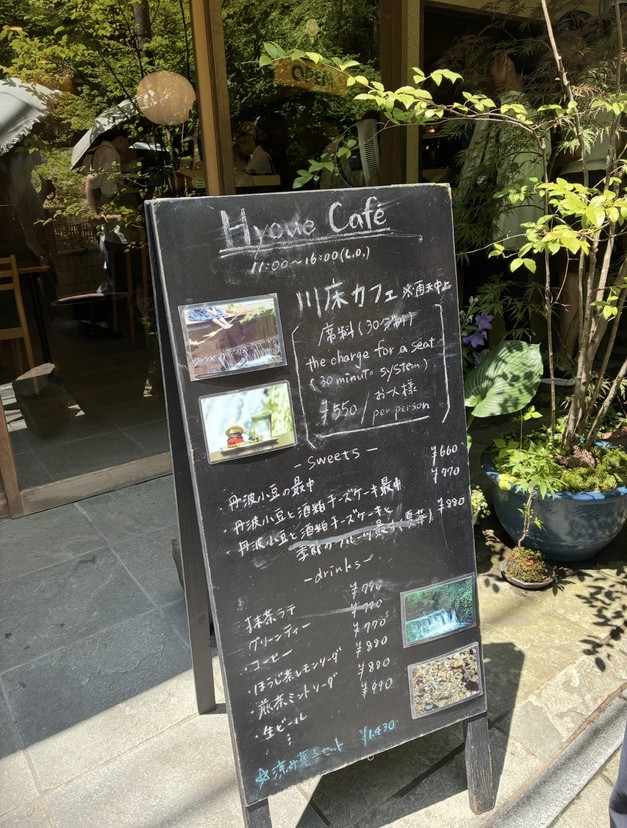 OPEN
Hyoue Café
11:00～16:00(L.O.)
川床カフェ ※雨天中止
席料(30分制)
the charge for a seat
(30 minute system)
¥550 / お一人様
per person
-sweets-
・丹波小豆の最中 ¥660
・丹波小豆と酒粕チーズケーキ最中 ¥770
・丹波小豆と酒粕チーズケーキと ¥880
季節のフルーツ最中(夏苺)
-drinks-
・抹茶ラテ ¥770
・グリーンティー ¥770
・コーヒー ¥770
・ほうじ茶レモンソーダ ¥880
・煎茶ミントソーダ ¥880
・生ビール ¥990
セット ¥1,430